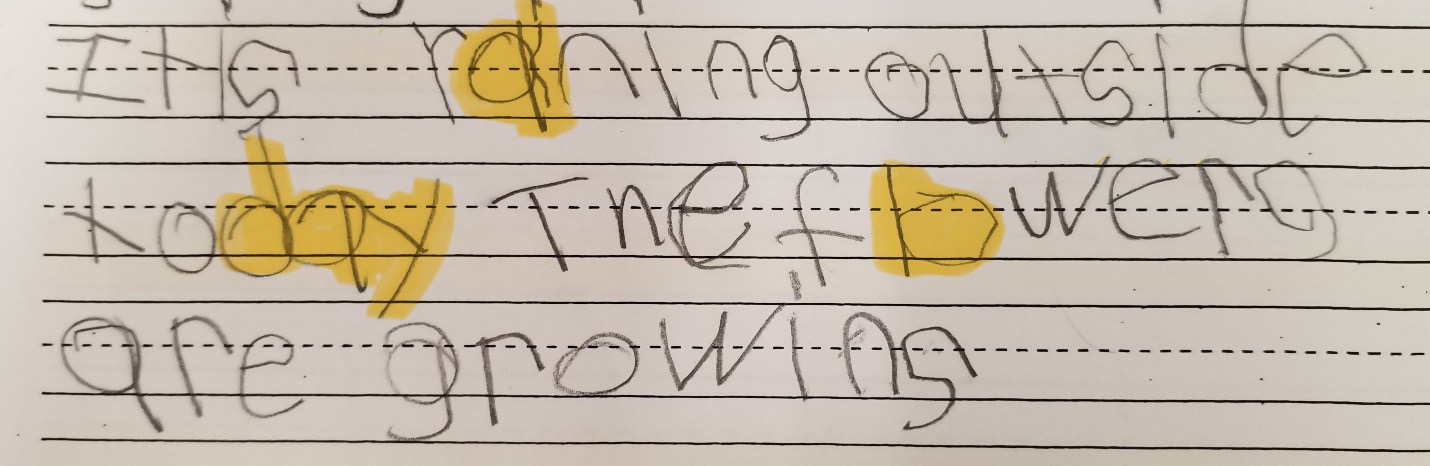 Its raning outside
today The flowers
are growing